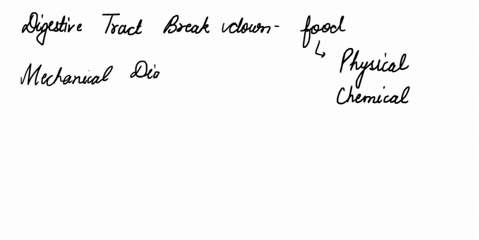 Digestive Tract Break down- food
↳ Physical
Chemical
Mechanical Dig